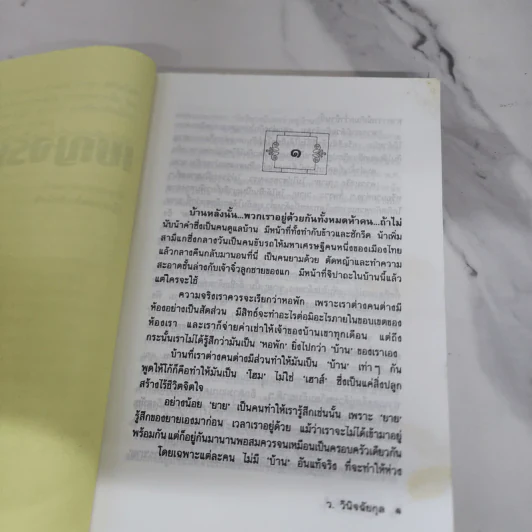 ๑
บ้านหลังนั้น...พวกเราอยู่ด้วยกันทั้งหมดห้าคน...ถ้าไม่
นับน้าคำซึ่งเป็นคนดูแลบ้าน มีหน้าที่ทั้งทำกับข้าวและซักรีด น้าเพิ่ม
สามีแกซึ่งกลางวันเป็นคนขับรถให้มหาเศรษฐีคนหนึ่งของเมืองไทย
แล้วกลางคืนกลับมานอนที่นี่ เป็นคนยามด้วย ตัดหญ้าและทำความ
สะอาดชั้นล่างกับเจ้าจิ๋วลูกชายของแก มีหน้าที่จิปาถะในบ้านนี้แล้ว
แต่ใครจะใช้
ความจริงเราควรจะเรียกว่าหอพัก เพราะเราต่างคนต่างมี
ห้องอย่างเป็นสัดส่วน มีสิทธิ์จะทำอะไรต่อมิอะไรภายในขอบเขตของ
ห้องเรา และเราก็จ่ายค่าเช่าให้เจ้าของบ้านเขาทุกเดือน แต่ถึง
กระนั้นเราไม่ได้รู้สึกว่ามันเป็น 'หอพัก' ยิ่งไปกว่า 'บ้าน' ของเราเอง
บ้านที่เราต่างคนต่างมีส่วนทำให้มันเป็น 'บ้าน' เท่า ๆ กัน
พูดให้โก้ก็คือทำให้มันเป็น 'โฮม' ไม่ใช่ 'เฮาส์' ซึ่งเป็นแค่สิ่งปลูก
สร้างไร้ชีวิตจิตใจ
อย่างน้อย 'ยาย' เป็นคนทำให้เรารู้สึกเช่นนั้น เพราะ 'ยาย'
รู้สึกของยายเองมาก่อน เวลาเราอยู่ด้วย แม้ว่าเราจะไม่ได้เข้ามาอยู่
พร้อมกัน แต่ก็อยู่กันมานานพอสมควรจนเหมือนเป็นครอบครัวเดียวกัน
โดยเฉพาะแต่ละคน ไม่มี 'บ้าน' อันแท้จริง ที่จะทำให้ห่วง
ว. วินิจฉัยกุล ๑